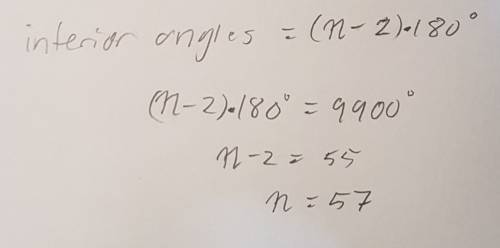 interior angles = (n-2)·180°
(n-2)·180° = 9900°
n-2 = 55
n = 57